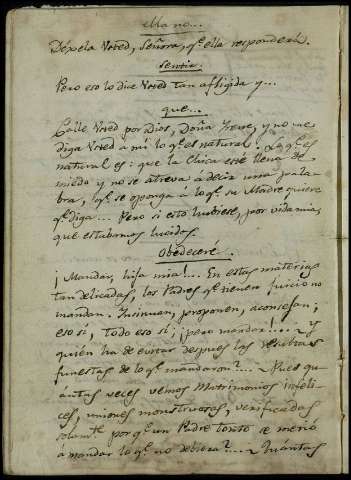 ella no...
Déxela Vsted, Señora, qᵉ ella responderá.
Sentir.
Pero eso lo dice Vsted tan afligida y...
que...
Calle Vsted por Dios, Doña Irene, y no me
diga Vsted a mi lo qᵉ es natural. Lo qᵉ es
natural es: que la Chica esté llena de
miedo y no se atreva á decir una pala-
bra, qᵉ se oponga á lo qᵉ su Madre quiere
qᵉ diga... Pero si esto hubiese, por vida mia,
que estabamos lucidos.
Obedeceré.
¡Mandar, hija mia!... En estas materias
tan delicadas, los Padres qᵉ tienen juicio no
mandan. Insinuan, proponen, aconsejan;
eso sí, todo eso sí; ¡pero mandar!... Y
quién ha de evitar despues las resultas
funestas de lo qᵉ mandaron?... Pues qu-
ántas veces vemos Matrimonios infeli-
ces, uniones monstruosas, verificadas
solamᵗᵉ porqᵉ un Padre tonto se metió
á mandar lo qᵉ no debiera?... Quántas